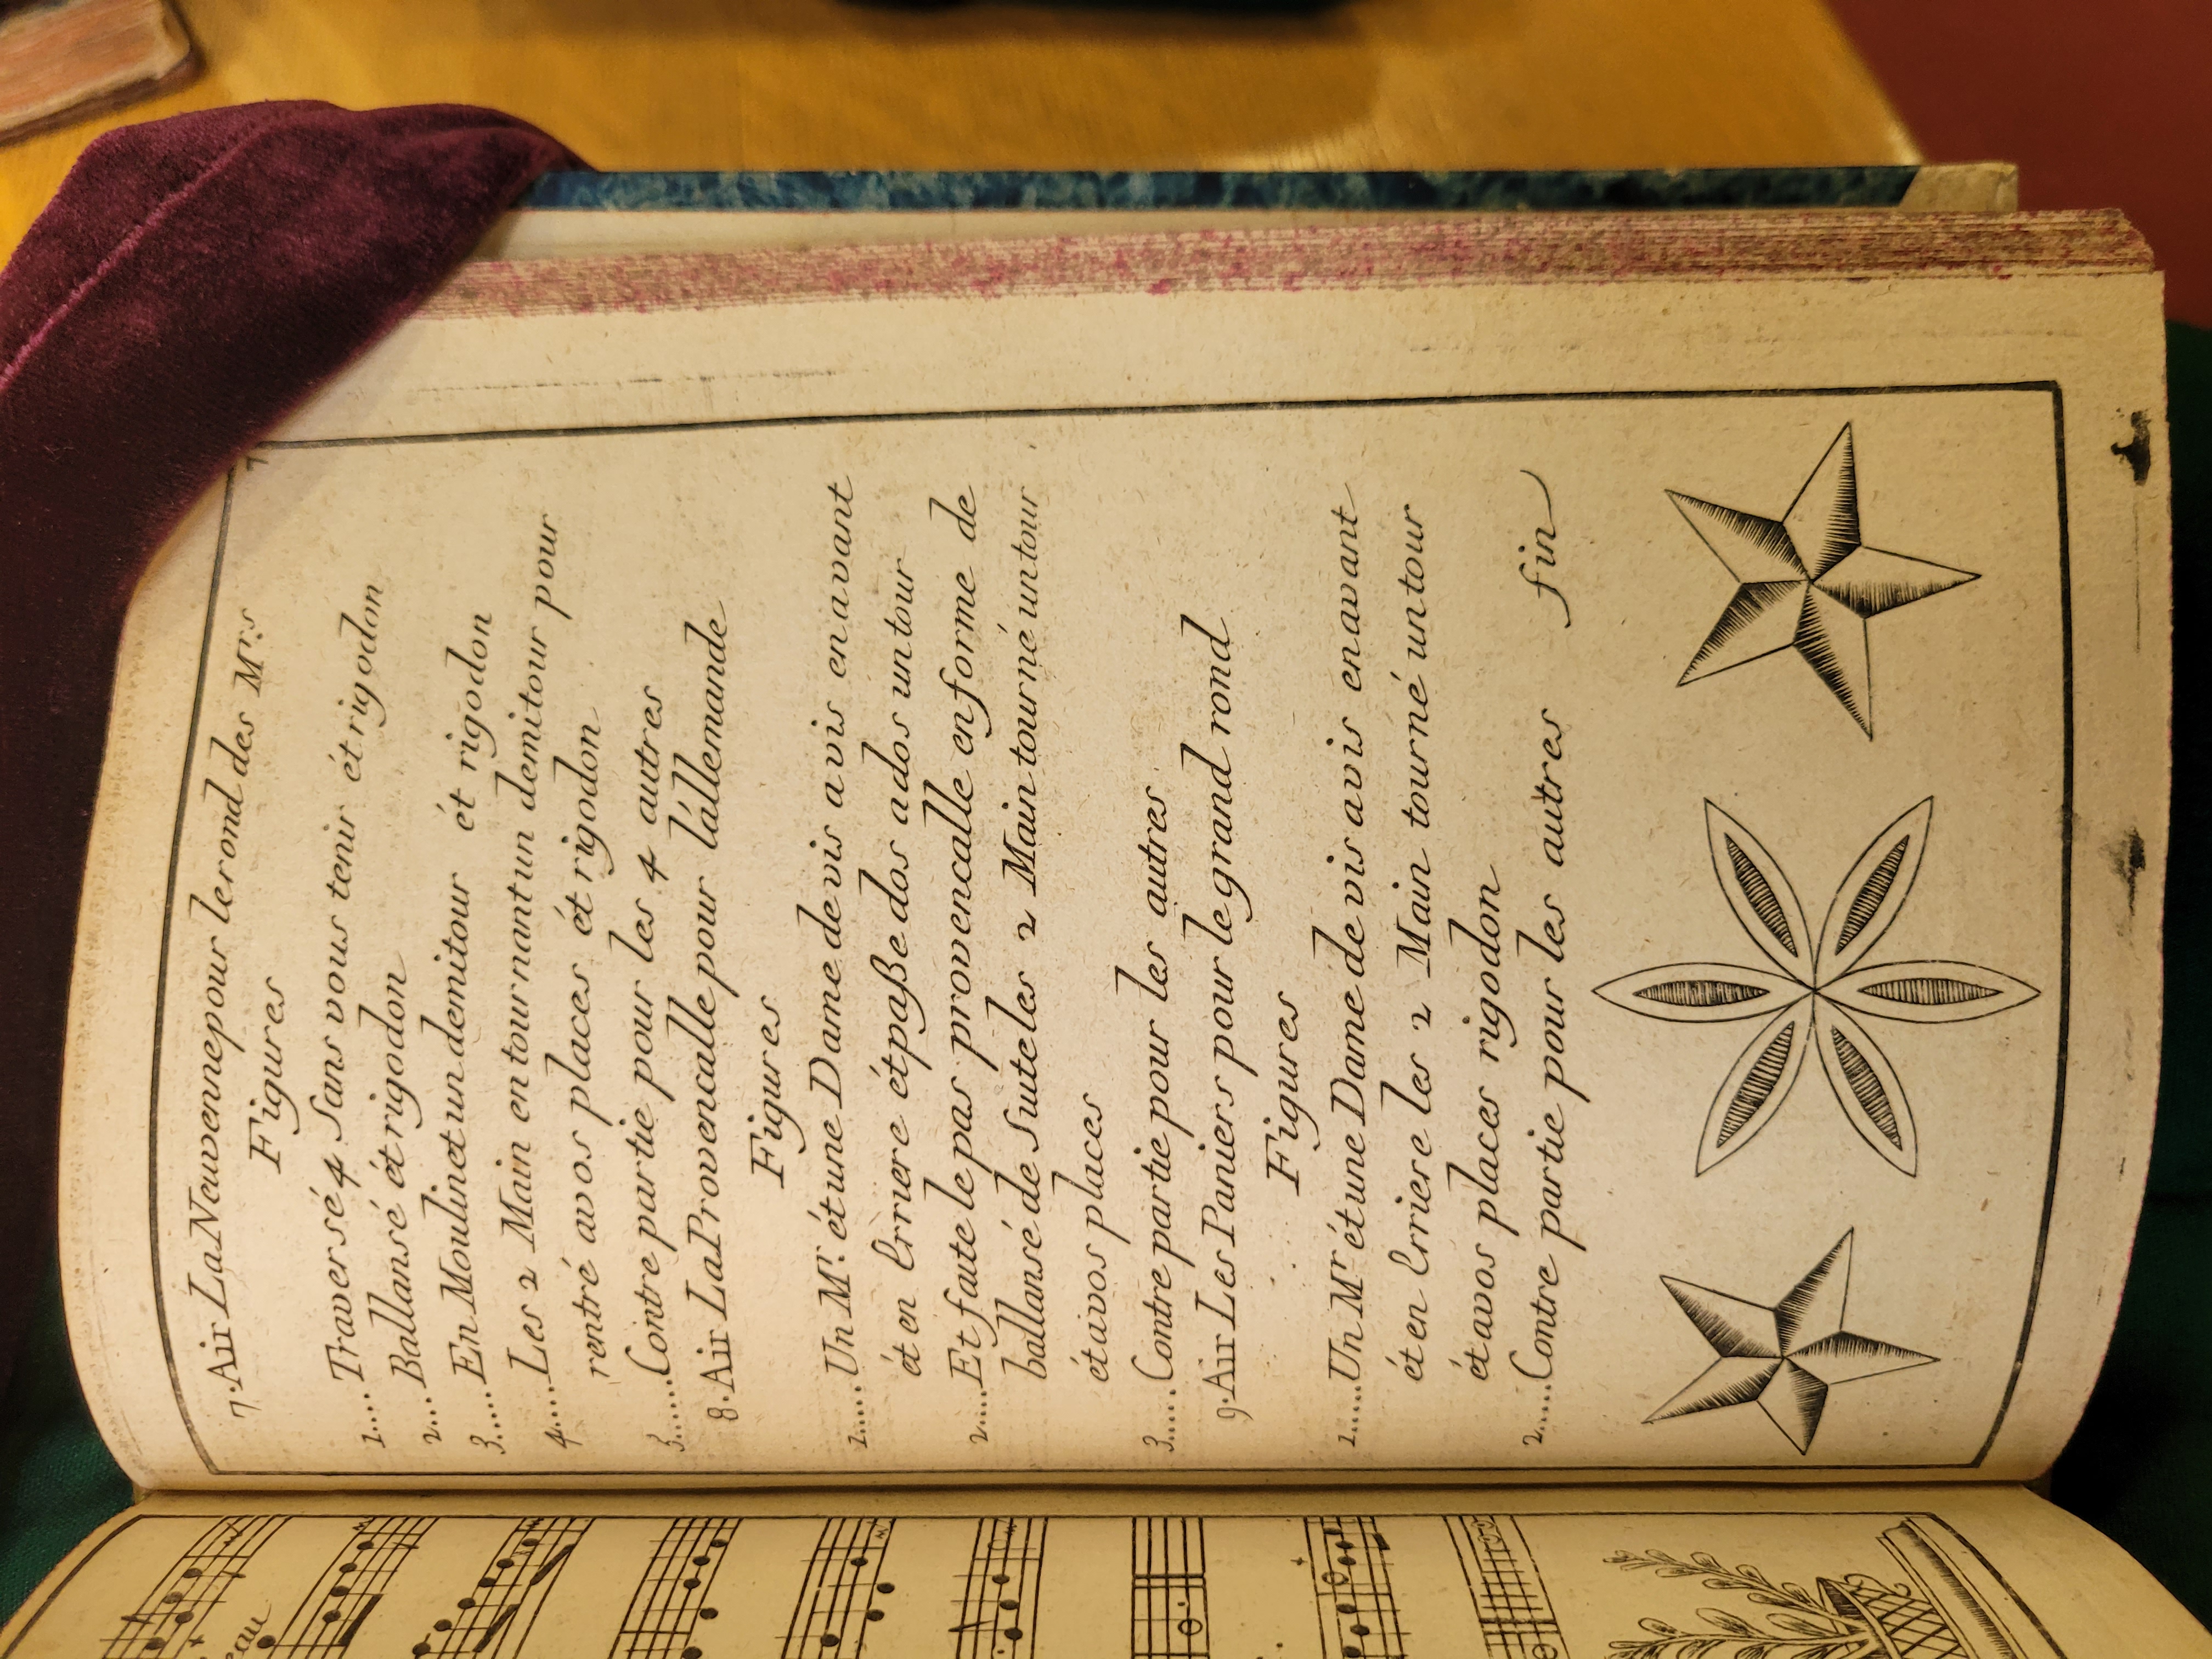 7. Air La Neuvenne pour le rond des Mrs.
Figures
1.... Traversé 4 Sans vous tenir ét rigodon
2.... Ballansé ét rigodon
3..... En Moulinet un demitour ét rigodon
4..... Les 2 Main en tournant un demitour pour
rentré avos places ét rigodon
5...... Contre partie pour les 4 autres
8. Air La Provencalle pour l'allemande
Figures
1..... Un Mr. ét une Dame de vis a vis en avant
ét en Erriere ét paße dos a dos un tour
2..... Et faute le pas provencalle en forme de
ballansé de Suite les 2 Main tourné un tour
ét avos places
3..... Contre partie pour les autres
9. Air Les Paniers pour le grand rond
Figures
1..... Un Mr ét une Dame de vis avis en avant
ét en Erriere les 2 Main tourné un tour
ét avos places rigodon
2..... Contre partie pour les autres fin